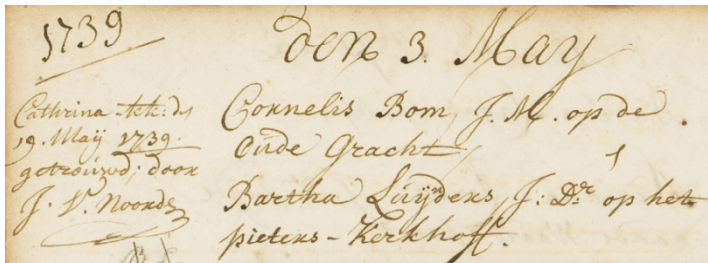 1739
den 3. May
Cathrina-kerk: d
19. Maÿ 1739.
getrouwd; door
J. V. Noorde
Cornelis Bom, J. M. op de
Oude Gracht,
Bartha Luÿders, J: Dr. op het
pieters-Kerkhoff.